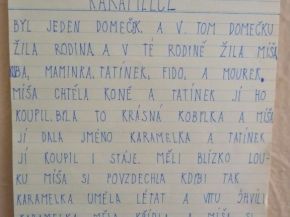 KARAMELCE
BYL JEDEN DOMEČEK. A V TOM DOMEČKU
ŽILA RODINA. A V TÉ RODINĚ ŽILA MÍŠA,
KUBA, MAMINKA, TATÍNEK, FIDO, A MOUREK.
MÍŠA CHTĚLA KONĚ A TATÍNEK JÍ HO
KOUPIL. BYLA TO KRÁSNÁ KOBYLKA A MÍŠA
JÍ DALA JMÉNO KARAMELKA A TATÍNEK
JÍ KOUPIL I STÁJE. MĚLI BLÍZKO LOU-
KU MÍŠA SI POVZDECHLA KDYBY TAK
KARAMELKA UMĚLA LÉTAT A VTU CHVÍLI
KARAMELKA MĚLA KŘÍDLA A MÍŠA SI